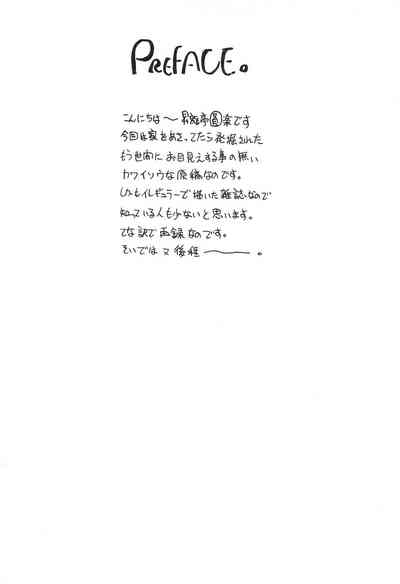 PREFACE。
こんにちは〜 亭圓楽です
今回は家をあさってたら発掘された
もう世間にお目見えする事の無い
カワイソウな原稿なのです。
しかもイレギュラーで描いた雑誌なので
知っている人も少ないと思います。
てな訳で再録なのです。
そいでは又後程———。